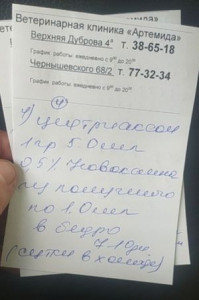 Ветеринарная клиника «Артемида»
Верхняя Дуброва 4ª т. 38-65-18
График работы ежедневно с 9⁰⁰ до 20⁰⁰
Чернышевского 68/2 т. 77-32-34
График работы ежедневно с 9⁰⁰ до 20⁰⁰
4
1) Цефтриаксон
1 гр 5.0 мл
0,5% Новокаина
по 1.0 мл
в бедро
7-10 дн
(сутки в холоде)